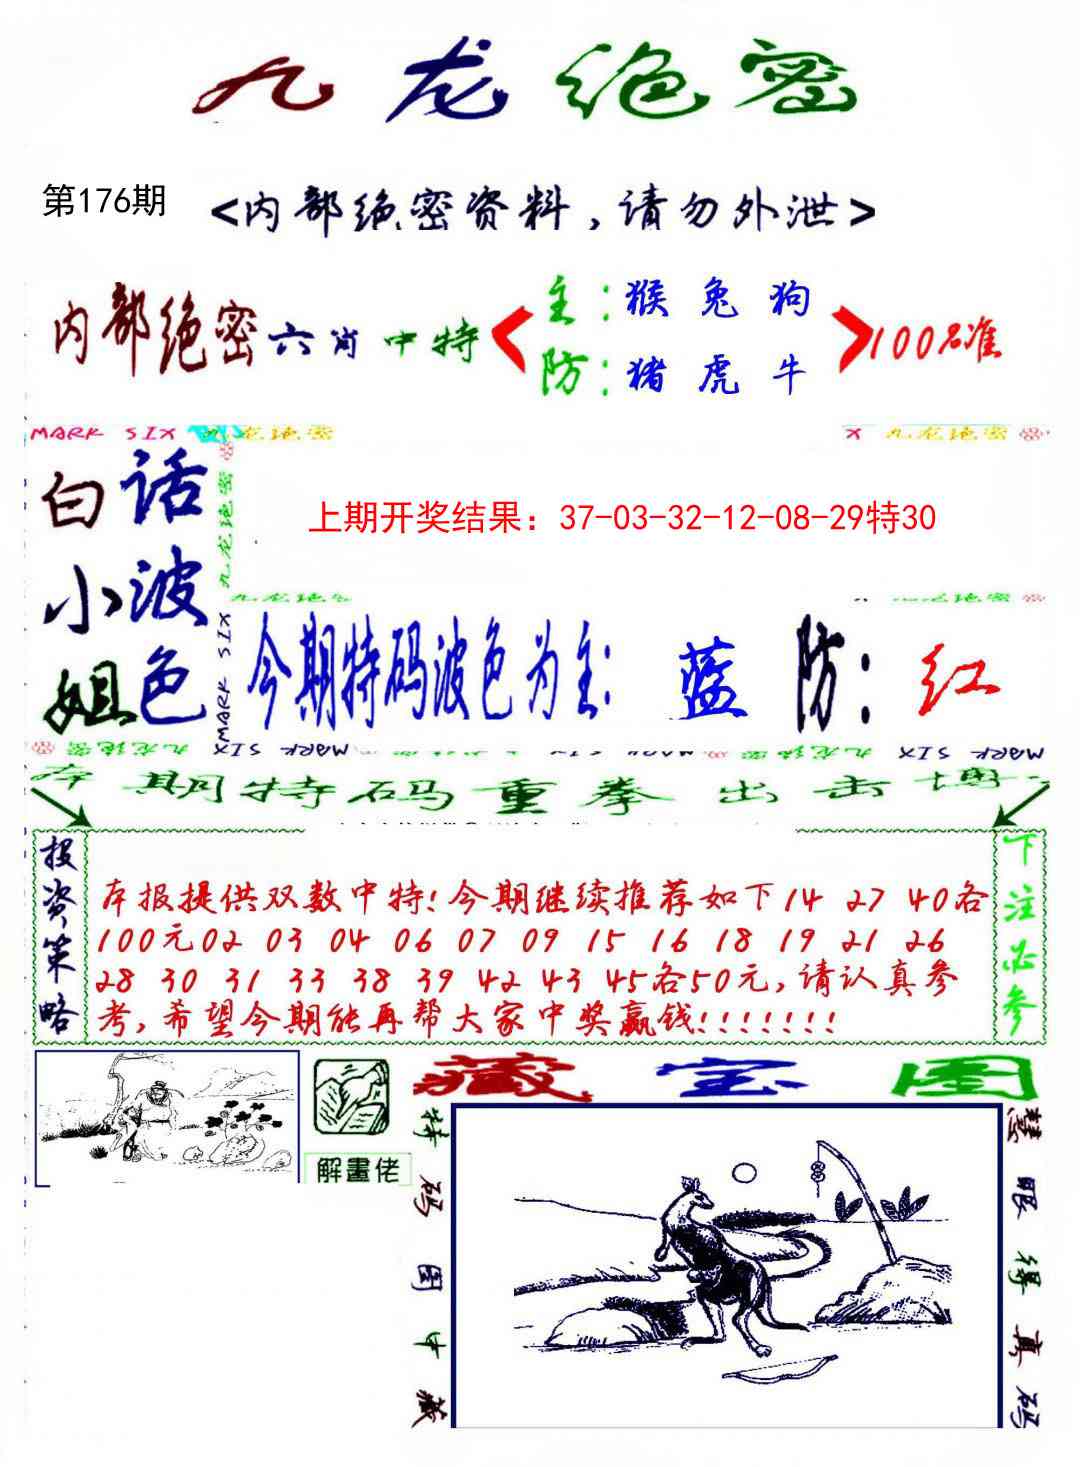 九龙绝密
第176期
<内部绝密资料,请勿外泄>
内部绝密六肖中特
主:猴 兔 狗
防:猪 虎 牛
100%准
MARK SIX 九龙绝密
X 九龙绝密
白话
小波
姐色
九龙绝密
MARK SIX
上期开奖结果：37-03-32-12-08-29特30
九龙绝密
九龙绝密
今期特码波色为主: 蓝 防: 红
九龙绝密 MARK SIX 九龙绝密 MARK SIX 九龙绝密 MARK SIX
本期特码重拳出击博
投资策略
本报提供双数中特!今期继续推荐如下14 27 40各
100元02 03 04 06 07 09 15 16 18 19 21 26
28 30 31 33 38 39 42 43 45各50元,请认真参
考,希望今期能再帮大家中奖赢钱!!!!!!!
下注必参
解畫佬
藏宝图
特码图中藏
慧眼得真码